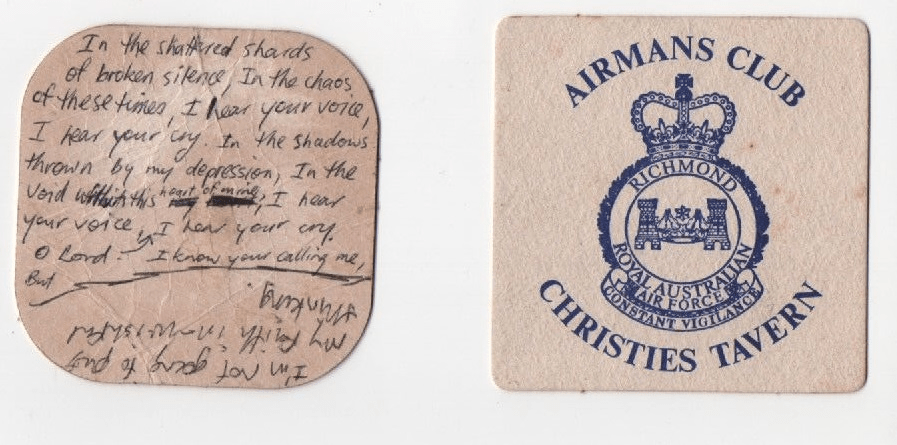 In the shattered shards
of broken silence, In the chaos
of these times, I hear your voice,
I hear your cry. In the shadows
thrown by my depression, In the
void within this heart of mine, I hear
your voice, I hear your cry.
O Lord - I know your calling me,
But
I'm not going to put
my faith in wristful
thinking.
AIRMANS CLUB
RICHMOND
ROYAL AUSTRALIAN
AIR FORCE
CONSTANT VIGILANCE
CHRISTIES TAVERN